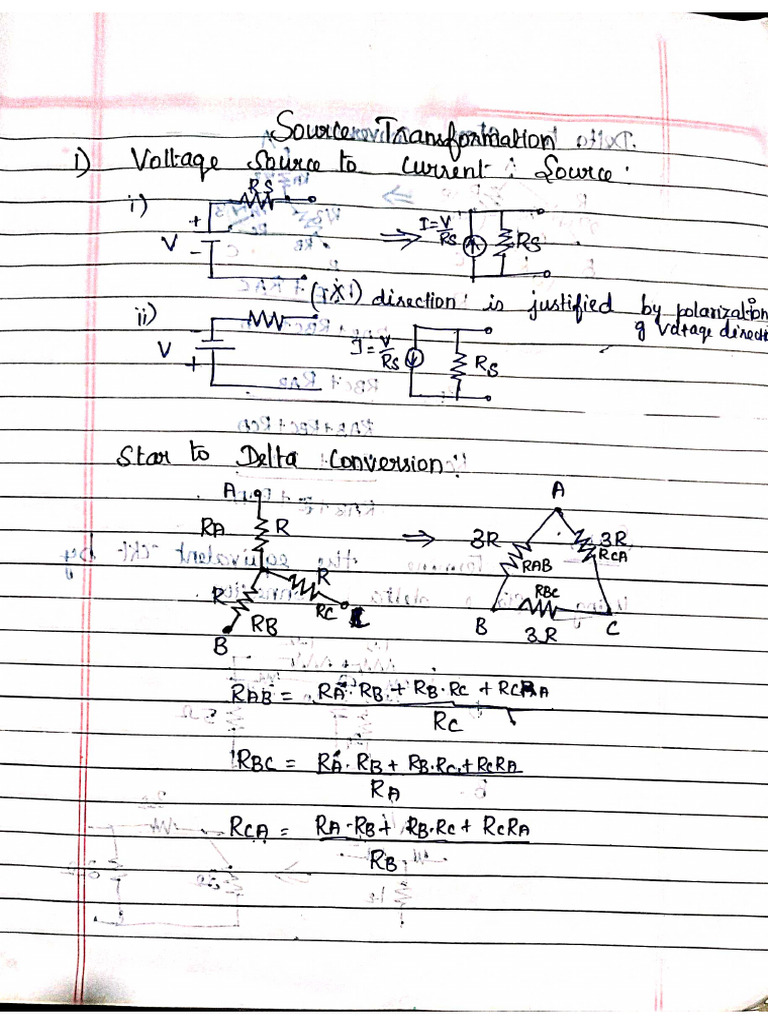 Source Transformation
i) Voltage Source to current : Source.
i)
RS
+
V
-
⇒
I = V/RS
RS
(I) direction is justified by polarization
of voltage directi
ii)
-
V
+
I = V/RS
RS
Star to Delta Conversion:
A
RA R
R
RC C
R
RB
B
⇒
A
3R 3R
RAB RCA
RBC
B C
3R
RAB = RA·RB + RB·RC + RCRA
RC
RBC = RA·RB + RB·RC + RCRA
RA
RCA = RA·RB + RB·RC + RCRA
RB